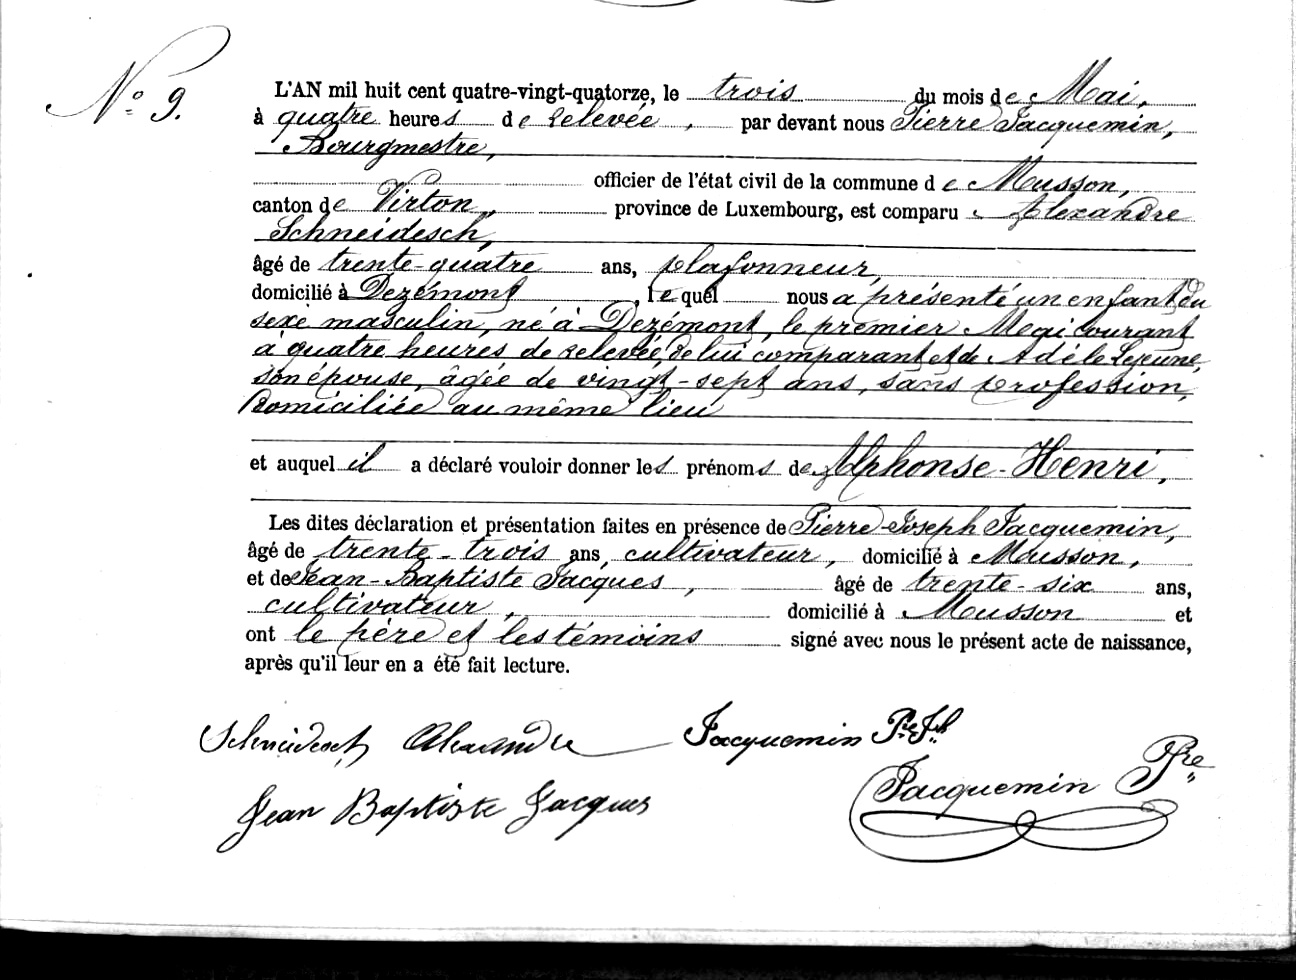 N° 9.
L'AN mil huit cent quatre-vingt-quatorze, le trois du mois de Mai,
à quatre heures de relevée, par devant nous Pierre Jacquemin,
Bourgmestre,
officier de l'état civil de la commune de Musson,
canton de Virton, province de Luxembourg, est comparu Alexandre
Schneidesch,
âgé de trente-quatre ans, plafonneur,
domicilié à Dezémont, lequel nous a présenté un enfant du
sexe masculin, né à Dezémont, le premier Mai courant
à quatre heures de relevée, de lui comparant et de Adèle Lejeune,
son épouse, âgée de vingt-sept ans, sans profession,
domiciliée au même lieu
et auquel il a déclaré vouloir donner les prénoms de Alphonse-Henri,
Les dites déclaration et présentation faites en présence de Pierre-Joseph Jacquemin,
âgé de trente-trois ans, cultivateur, domicilié à Musson,
et de Jean-Baptiste Jacques, âgé de trente-six ans,
cultivateur, domicilié à Musson et
ont le père et les témoins signé avec nous le présent acte de naissance,
après qu'il leur en a été fait lecture.
Schneidesch Alexandre Jacquemin Pre Jh
Jean Baptiste Jacques Jacquemin Pre